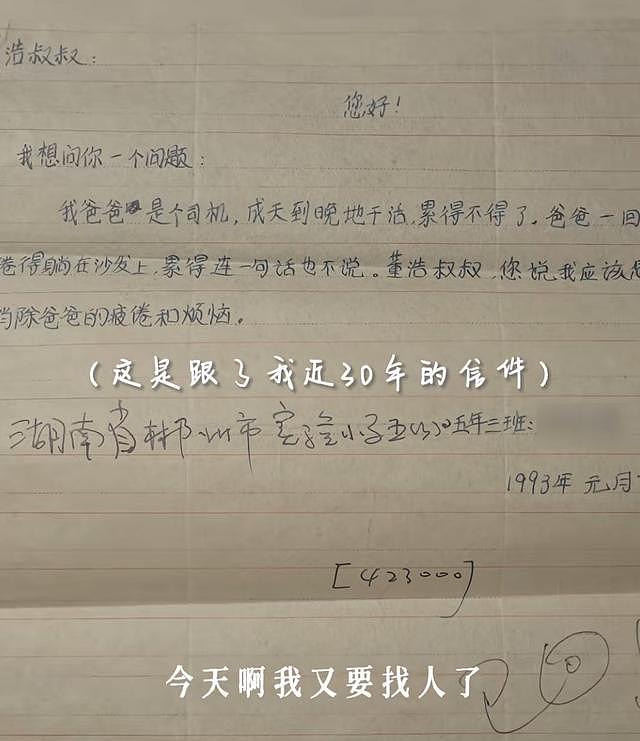 浩叔叔:
您好!
我想问你一个问题:
我爸爸是个司机,成天到晚地干活,累得不得了。爸爸一回
倦得躺在沙发上,累得连一句话也不说。董浩叔叔,您说我应该
除爸爸的疲倦和烦恼。
(这是跟了我近30年的信件)
湖南省郴州市实验小学五(3)五年三班:
1993年 元月
[423000]
今天啊我又要找人了